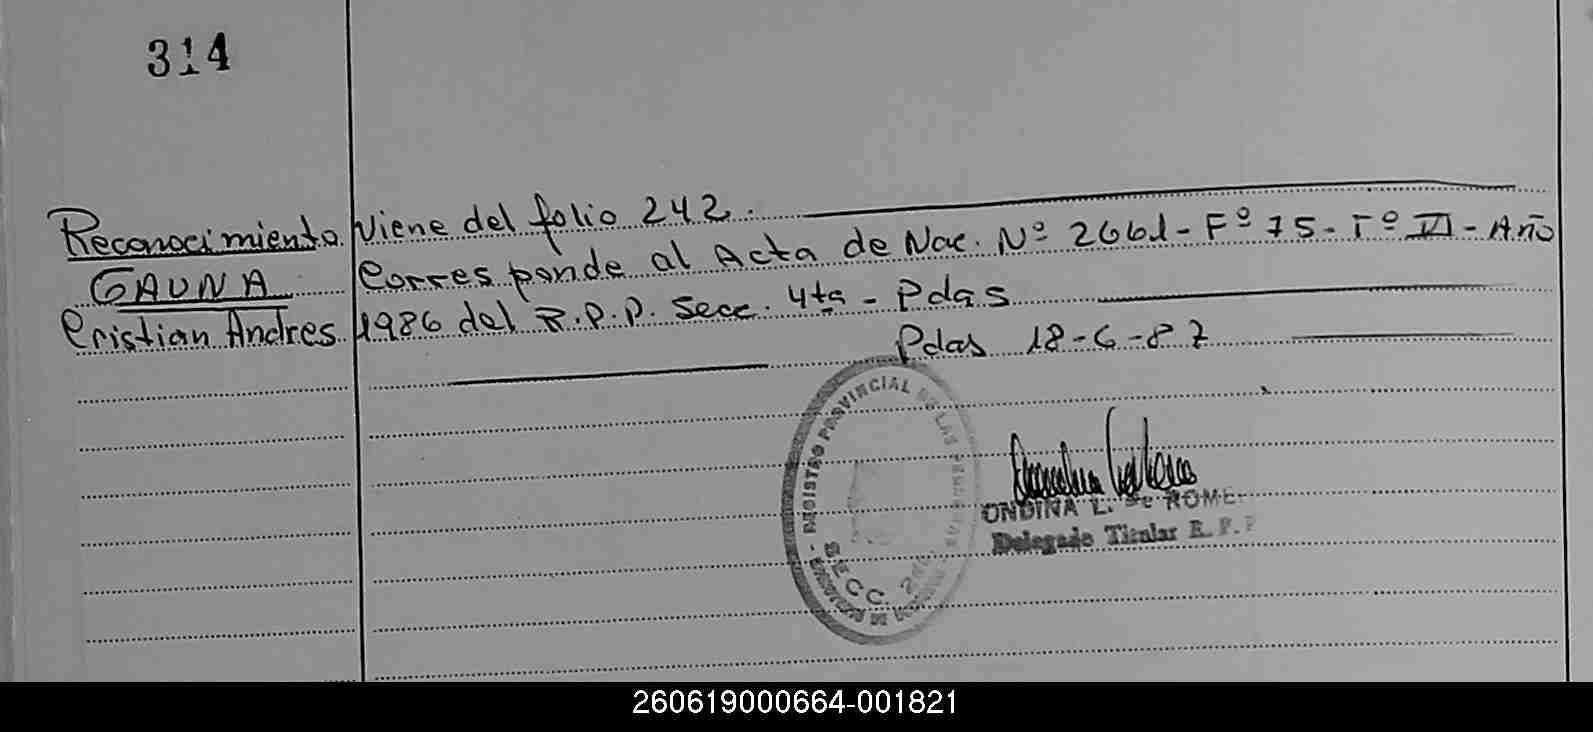 314
Reconocimiento Viene del folio 242.
GAUNA Corresponde al Acta de Nac. Nº 2661 - Fº 75 - Tº VI - Año
Cristian Andres 1986 del R.P.P. Secc. 4ta - Pdas
Pdas 18-6-87
REGISTRO PROVINCIAL DE LAS PERSONAS
SECC. 2da.
ONDINA L. de ROME
Delegado Titular R. P. P
260619000664-001821